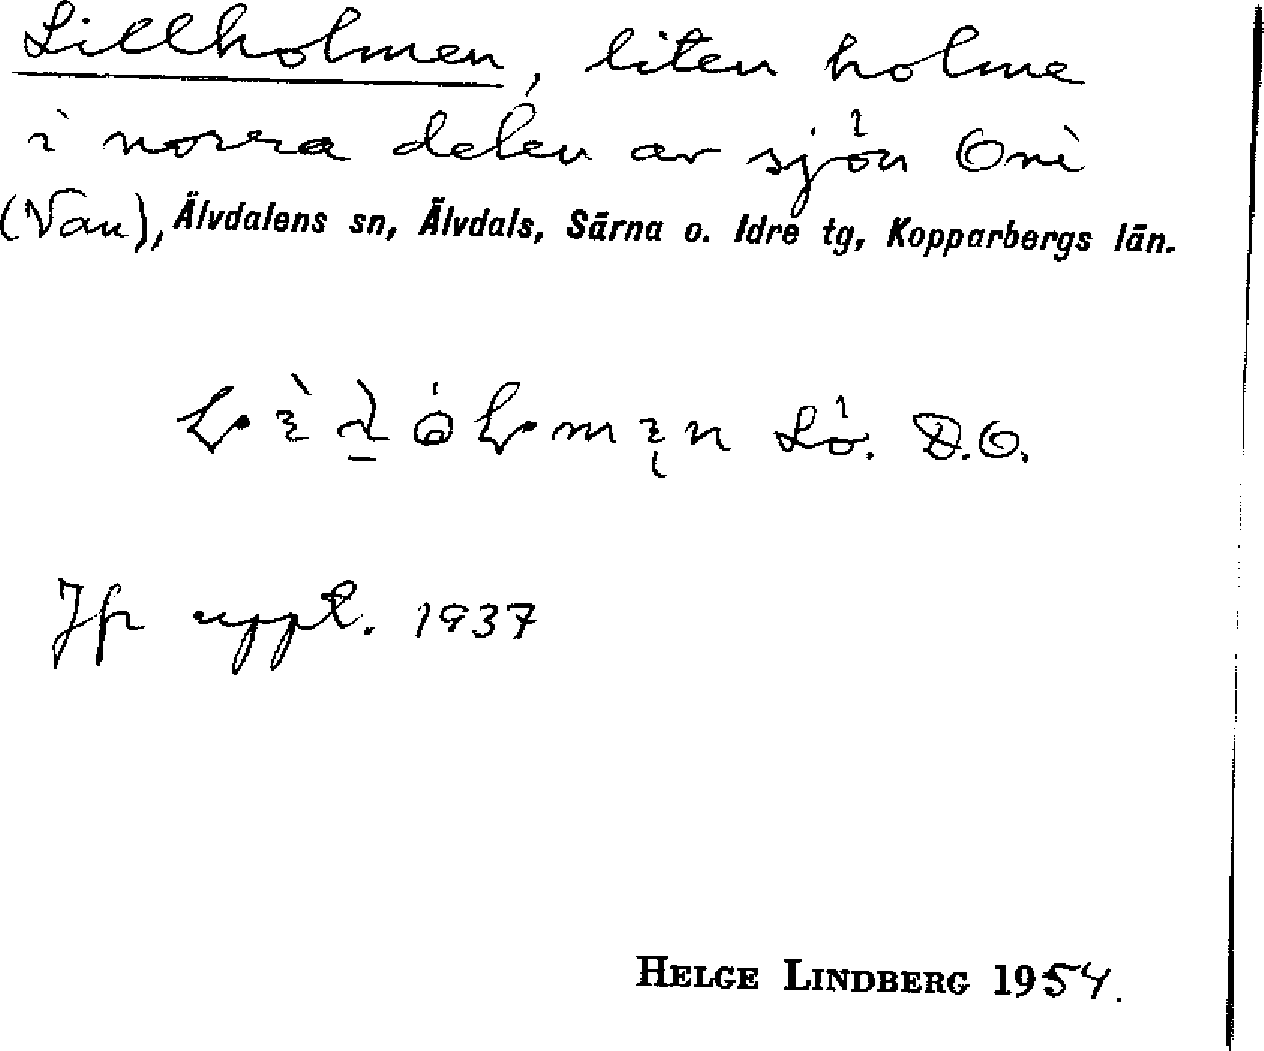 Lillholmen, liten holme
i norra delen av sjön Oni
(Van), Älvdalens sn, Älvdals, Särna o. Idre tg, Kopparbergs län.
Lö. D.O.
Jfr uppt. 1937
HELGE LINDBERG 1954.